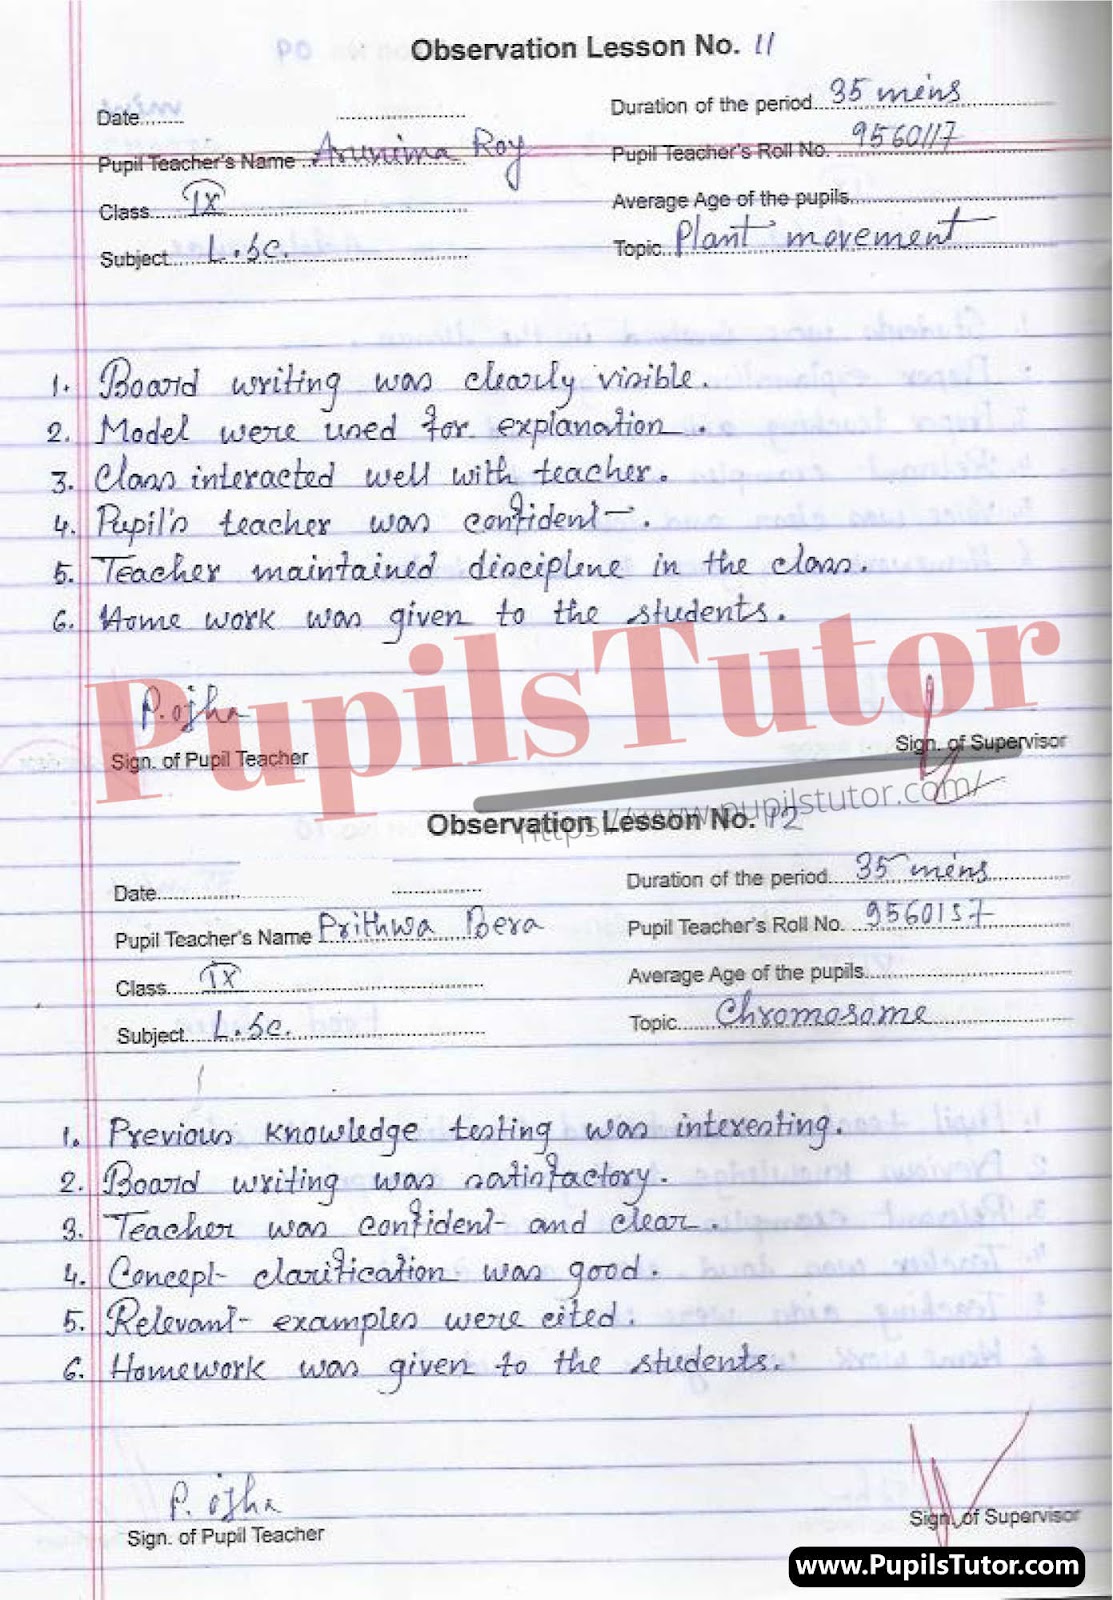 Observation Lesson No. 11
Date........ Duration of the period 35 mins
Pupil Teacher's Name Arunima Roy Pupil Teacher's Roll No. 9560117
Class IX Average Age of the pupils
Subject L.Sc. Topic Plant movement
1. Board writing was clearly visible.
2. Model were used for explanation.
3. Class interacted well with teacher.
4. Pupil's teacher was confident.
5. Teacher maintained discipline in the class.
6. Home work was given to the students.
PupilsTutor
P. ojha
Sign. of Pupil Teacher Sign. of Supervisor
https://www.pupilstutor.com/
Observation Lesson No. 12
Date Duration of the period 35 mins
Pupil Teacher's Name Prithwa Bera Pupil Teacher's Roll No. 9560157
Class IX Average Age of the pupils
Subject L.Sc. Topic Chromosome
1. Previous knowledge testing was interesting.
2. Board writing was satisfactory.
3. Teacher was confident and clear.
4. Concept clarification was good.
5. Relevant examples were cited.
6. Homework was given to the students.
P. ojha
Sign. of Pupil Teacher Sign. of Supervisor
www.PupilsTutor.com